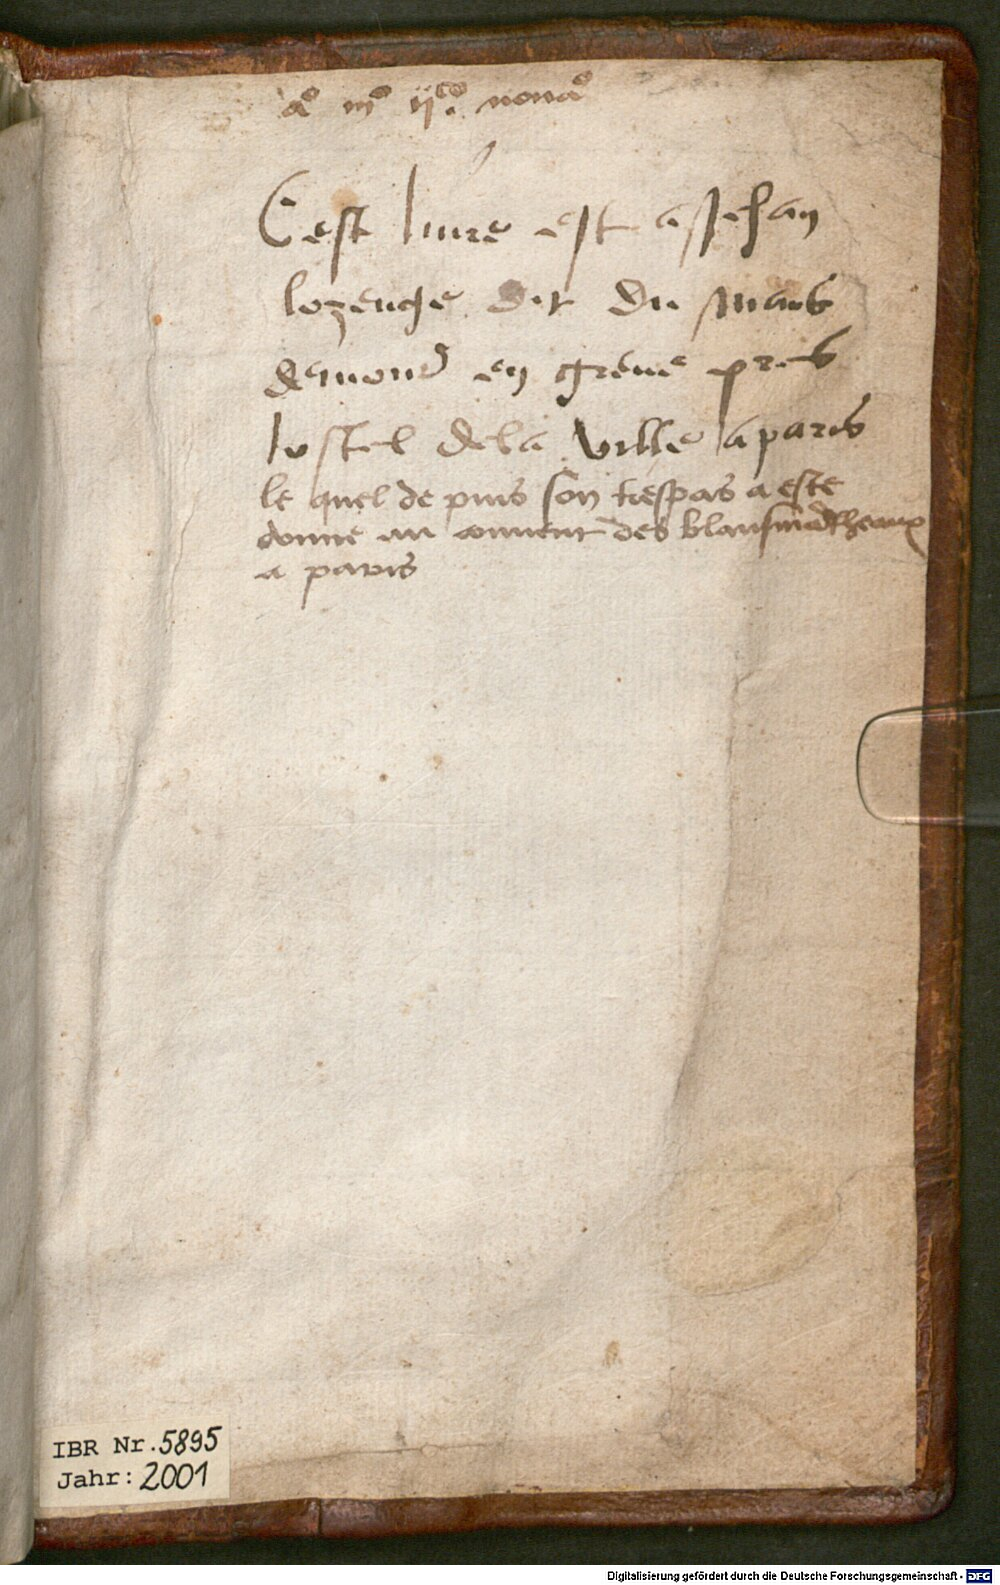 aº mº ijcº. nonaº
Cest liure est a Jehan
lozenge dit du mans
demourᵈ en greue pres
lostel de la ville a paris
le quel de puis son trespas a este
donne au conuent des blansmātheaux
a paris
IBR Nr. 5895
Jahr: 2001
Digitalisierung gefördert durch die Deutsche Forschungsgemeinschaft - DFG